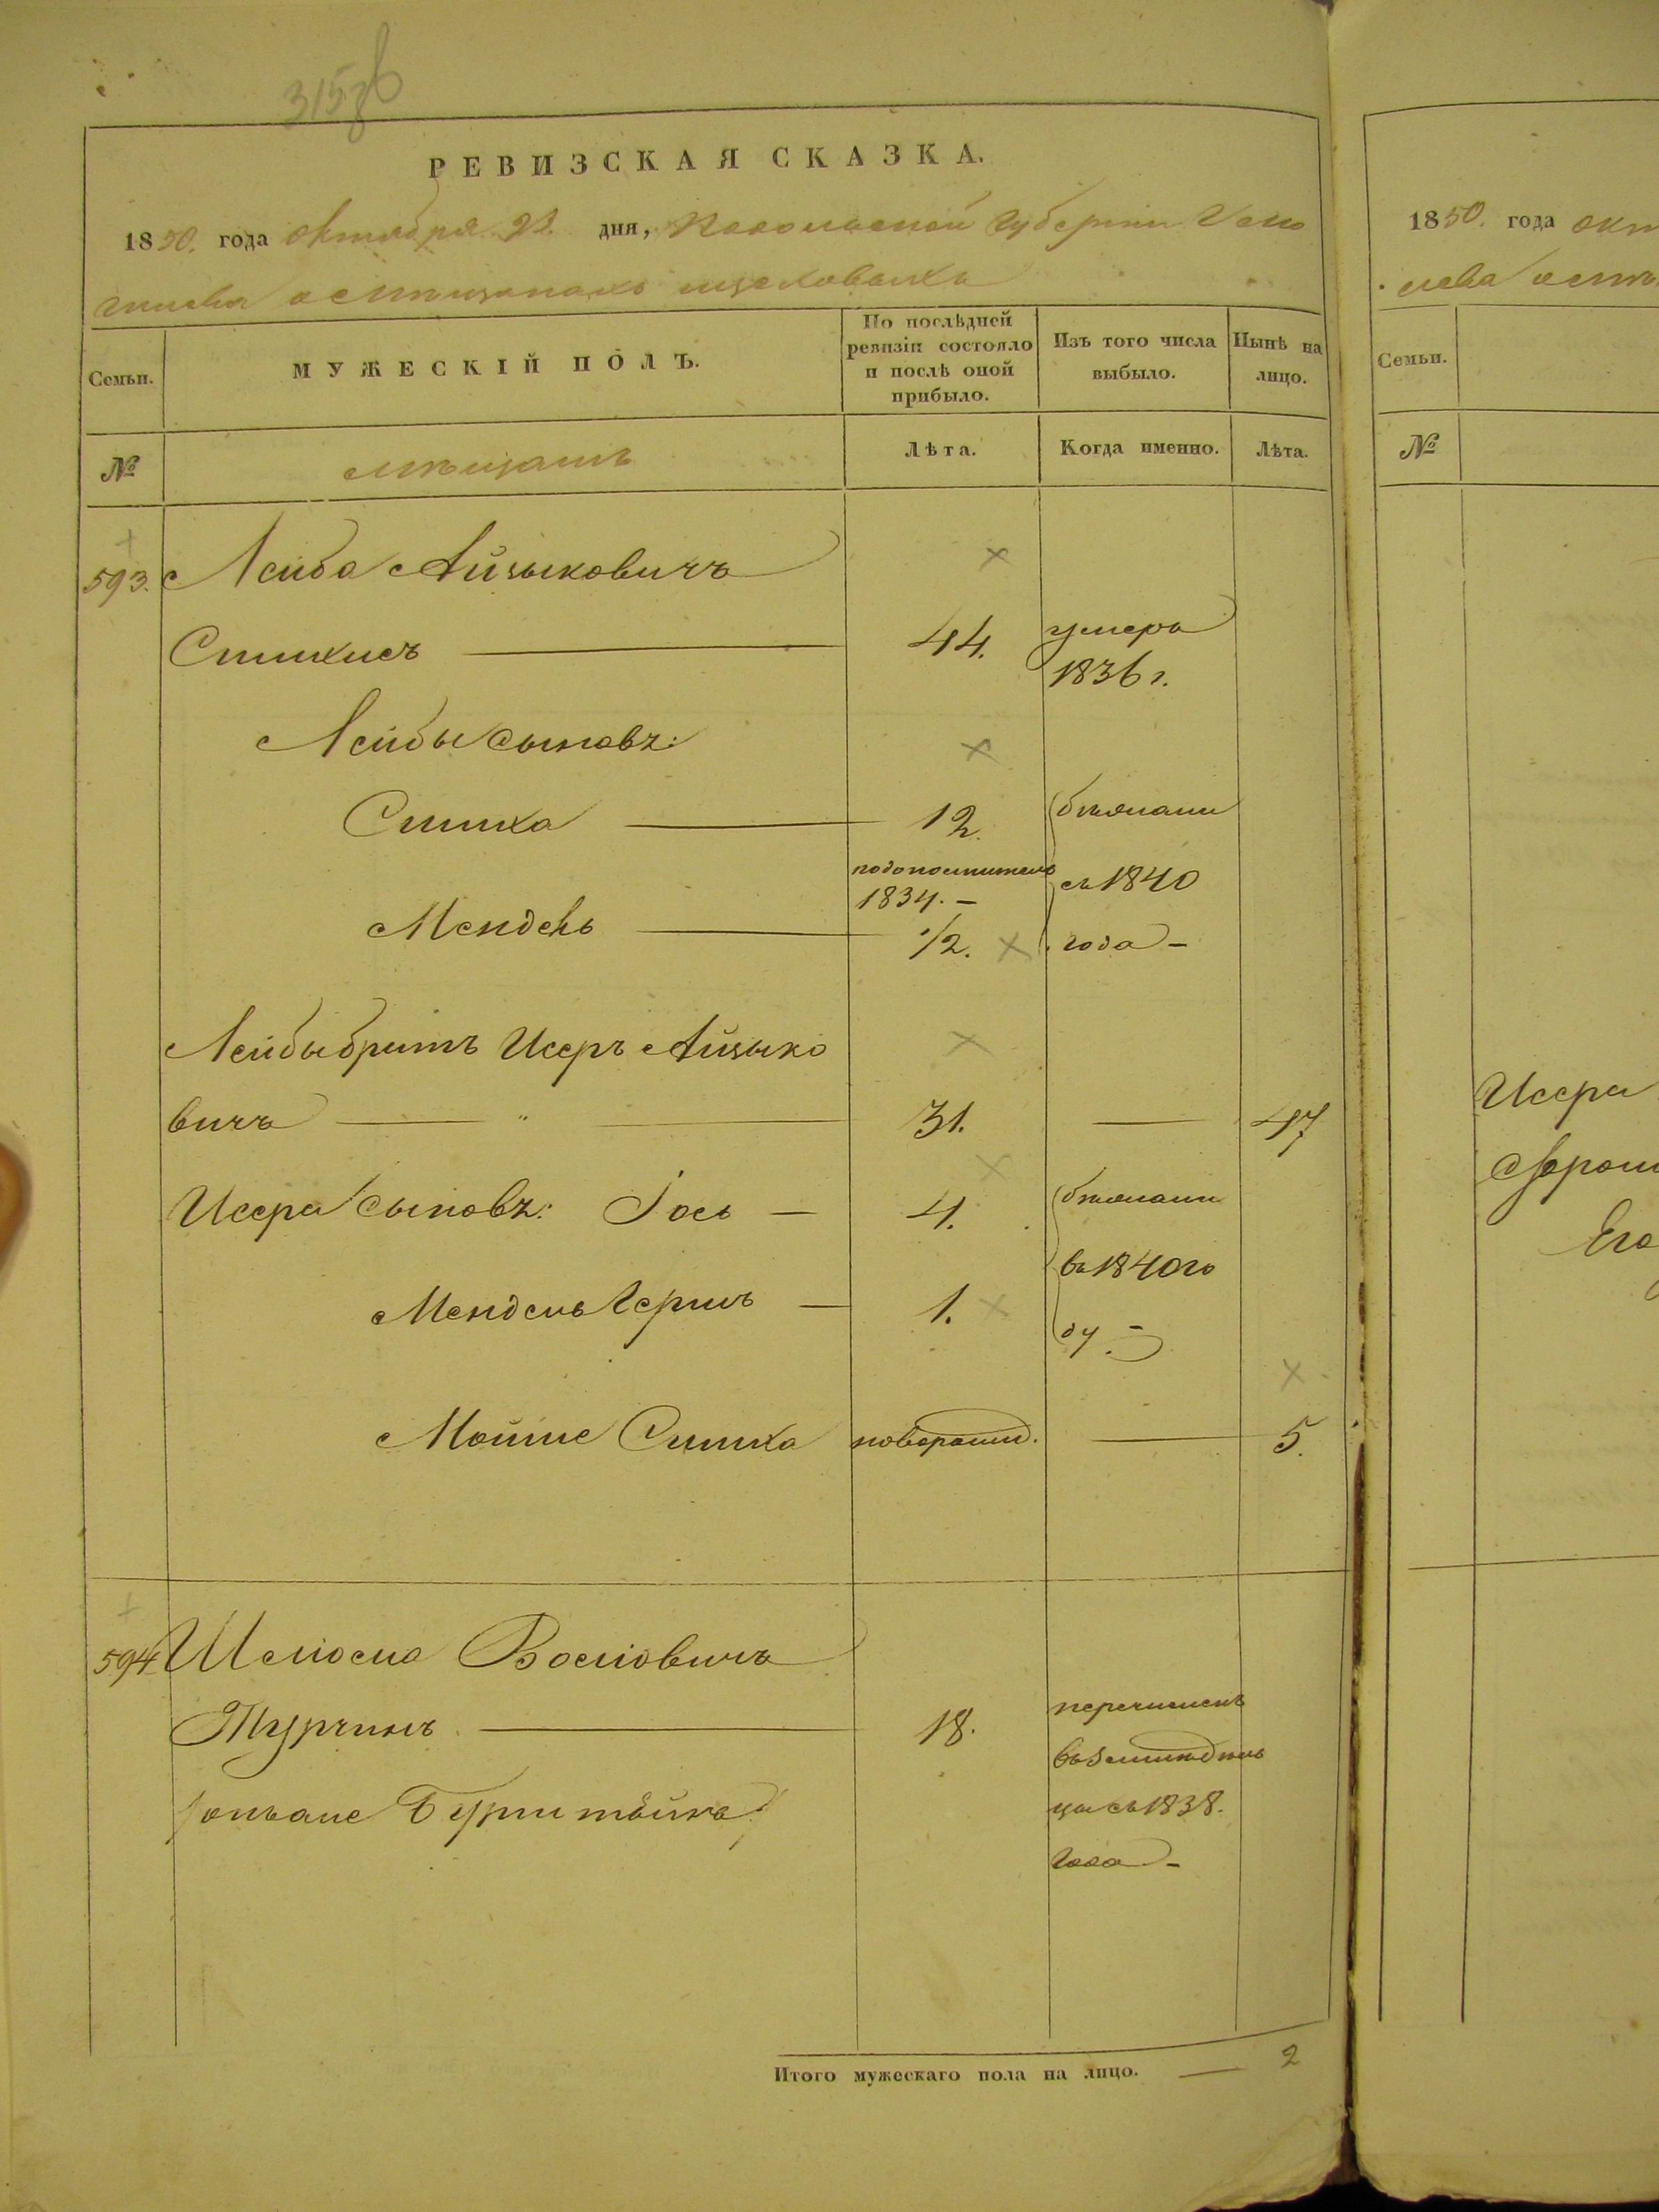 315 об
РЕВИЗСКАЯ СКАЗКА.
1850. года октября 23. дня, Подольской Губернии
о мѣщанахъ
Семьи.
МУЖЕСКІЙ ПОЛЪ.
По послѣдней ревизіи состояло и послѣ оной прибыло.
Изъ того числа выбыло.
Нынѣ на лицо.
№
мѣщанъ
Лѣта.
Когда именно.
Лѣта.
593. Лейба Айзыковичъ
44. умеръ
1836 г.
Лейбы сыновъ:
Симха 12. бѣжали
1834. —
съ 1840
Мендель 1/2. года —
Лейбы братъ Исеръ Айзыко
вичъ 31. 47
Исера сыновъ: Іось — 4. бѣжали
въ 1840 го
Мендель Гершъ — 1.
ду. —
Мойше Симха новорожд. 5.
594
Турчинъ 18. перечисленъ
съ 1838.
года —
Итого мужескаго пола на лицо. — 2
1850. года окт
Семьи.
№
Исера
Его